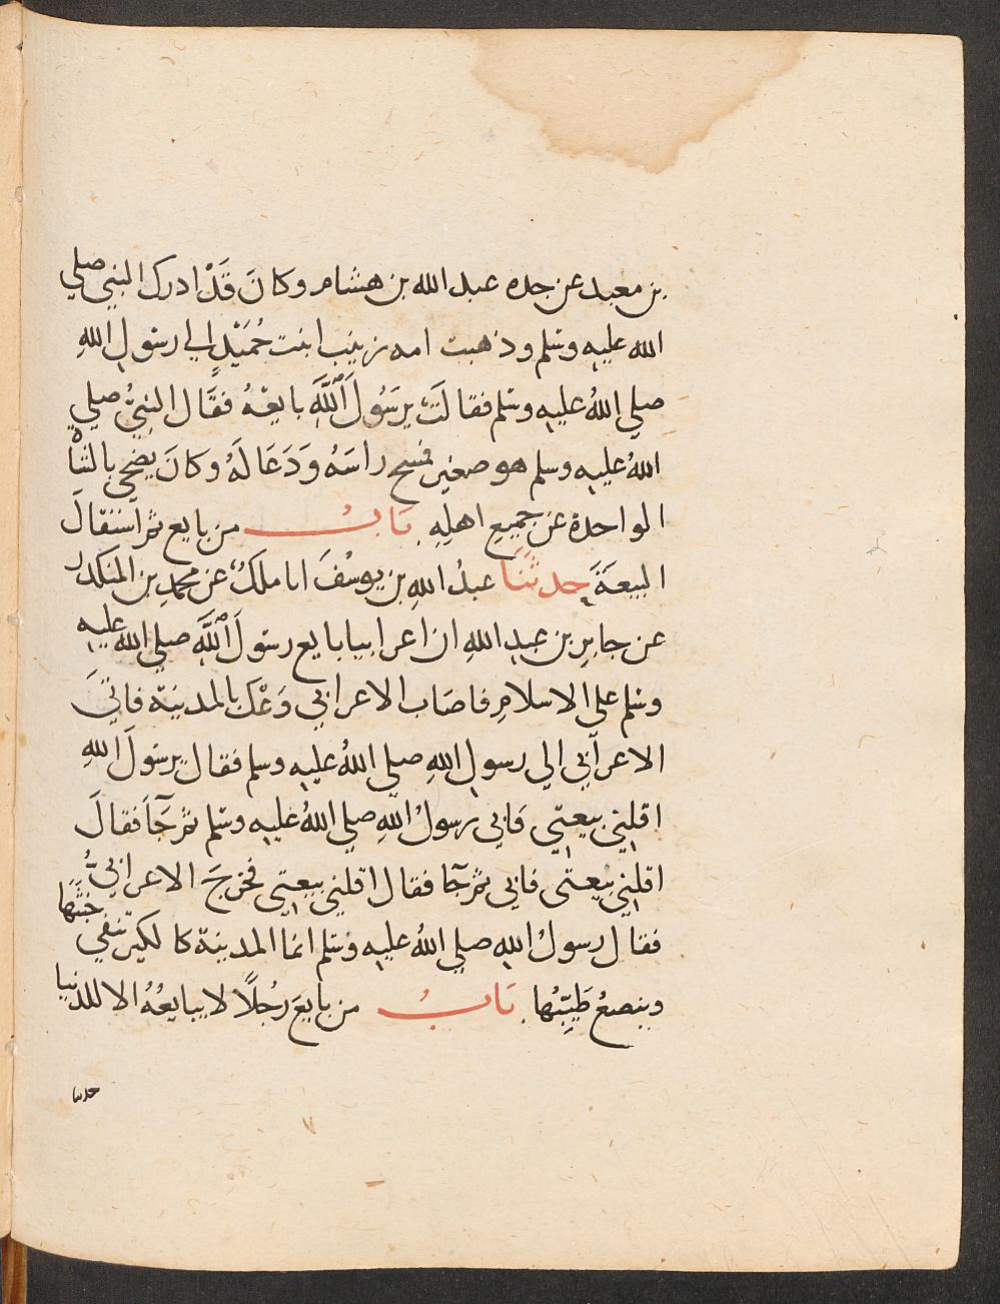 بن معبد عن جده عبد الله بن هشام وكانَ قَدْ ادرك النبي صلي
الله عليه وسلم وذهبت امه زينب ابنت حُمَيْدٍ الي رسول اللهِ
صلي اللهُ عليه وسلم فقالَت يرَسُولَ اللَّهِ بايعْهُ فقَال النبيُّ صلي
اللهُ عليه وسلم هو صغير فمسح راسَهُ وَدَعَا لَهُ وكانَ يضحي بالشاة
الواحدة عن جميع اهلِهِ بَابُ من بايع ثم استقالَ
البيعَةَ حدثَنَا عبدُ اللهِ بن يوسُفَ انا ملكٌ عن محمدِ بن المنكدر
عن جابرِ بن عبدِ اللهِ ان اعرابيا بايع رسولَ اللَّهِ صلي الله عليه
وسلم على الاسلامِ فاصَاب الاعرابي وَعْك بالمدينة فاتَي
الاعرابي الي رسولِ اللهِ صلي اللهُ عليه وسلم فقال يرسولَ اللهِ
اقلني بيعتي فابي رسولُ اللهِ صلي اللهُ عليه وسلم ثم جَآ فقالَ
اقلني بيعتي فابي ثم جآ فقال اقلني بيعتي فخرجَ الاعرابيُّ
فقال رسولُ اللهِ صلي اللهُ عليه وسلم انما المدينة كالكير تنفي خبَثَهَا
وينصعُ طَيِّبُها بَابُ من بايعَ رجُلًا لا يبايعُهُ الا للدنيا
حدثنا